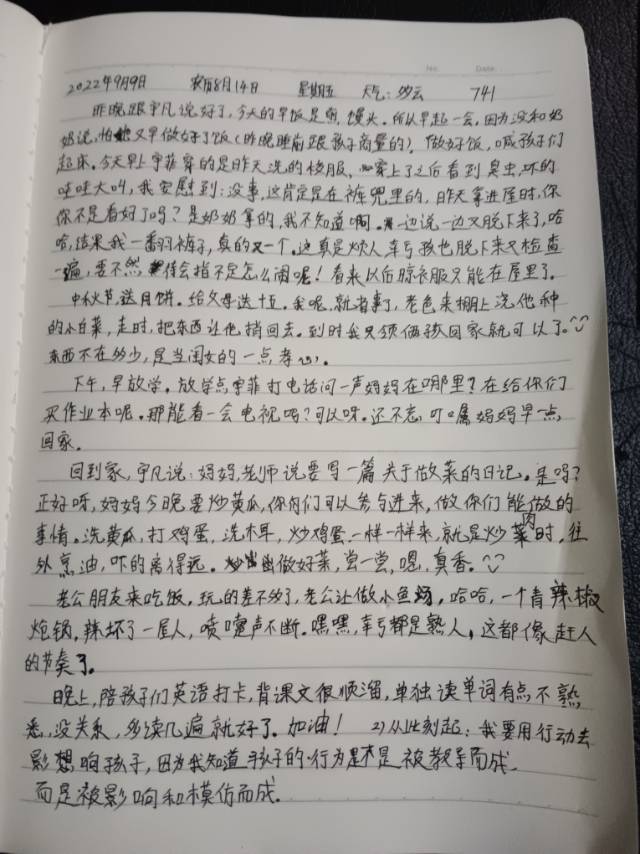 No. Date.
2022年9月9日 农历8月14日 星期五 天气:多云 741
昨晚跟宇凡说好了,今天的早饭是粥,馒头。所以早起一会,因为没和奶
奶说,怕她又早做好了饭(昨晚睡前跟孩子商量的)做好饭,喊孩子们
起床。今天早上宇菲穿的是昨天洗的校服,穿上了之后看到臭虫,吓的
哇哇大叫,我安慰到:没事,这肯定是在裤兜里的,昨天拿进屋时,你
你不是看好了吗?是奶奶拿的,我不知道啊。边说一边又脱下来了,哈
哈,结果我一翻裤子,真的又一个。这真是烦人,幸亏孩也脱下来又检查
一遍,要不然,待会指不定怎么闹呢!看来以后晾衣服只能在屋里了。
中秋节,送月饼。给父母选十五。我呢,就省事了,老爸来棚上浇他种
的小白菜,走时,把东西让他捎回去。到时我只领俩孩回家就可以了。
东西不在多少,是当闺女的一点孝心。
下午,早放学。放学点宇菲打电话问一声妈妈在哪里?在给你们
买作业本呢。那能看一会电视吗?可以呀。还不忘,叮嘱妈妈早一点
回家。
回到家,宇凡说:妈妈,老师说要写一篇关于做菜的日记。是吗?
正好呀,妈妈今晚要炒黄瓜,你们可以参与进来,做你们能做的
事情。洗黄瓜,打鸡蛋,洗木耳,炒鸡蛋一样一样来,就是炒肉时,往
外烹油,吓的离得远。做好菜,尝一尝,嗯,真香。
老公朋友来吃饭,玩的差不多了,老公让做小鱼汤,哈哈,一个青辣椒
炝锅,辣坏了一屋人,喷嚏声不断。嘿嘿,幸亏都是熟人,这都像赶人
的节奏了。
晚上,陪孩子们英语打卡,背课文很顺溜,单独读单词有点不熟
悉,没关系,多读几遍就好了。加油! 2)从此刻起:我要用行动去
影响孩子,因为我知道孩子的行为是不是被教导而成
而是被影响和模仿而成。